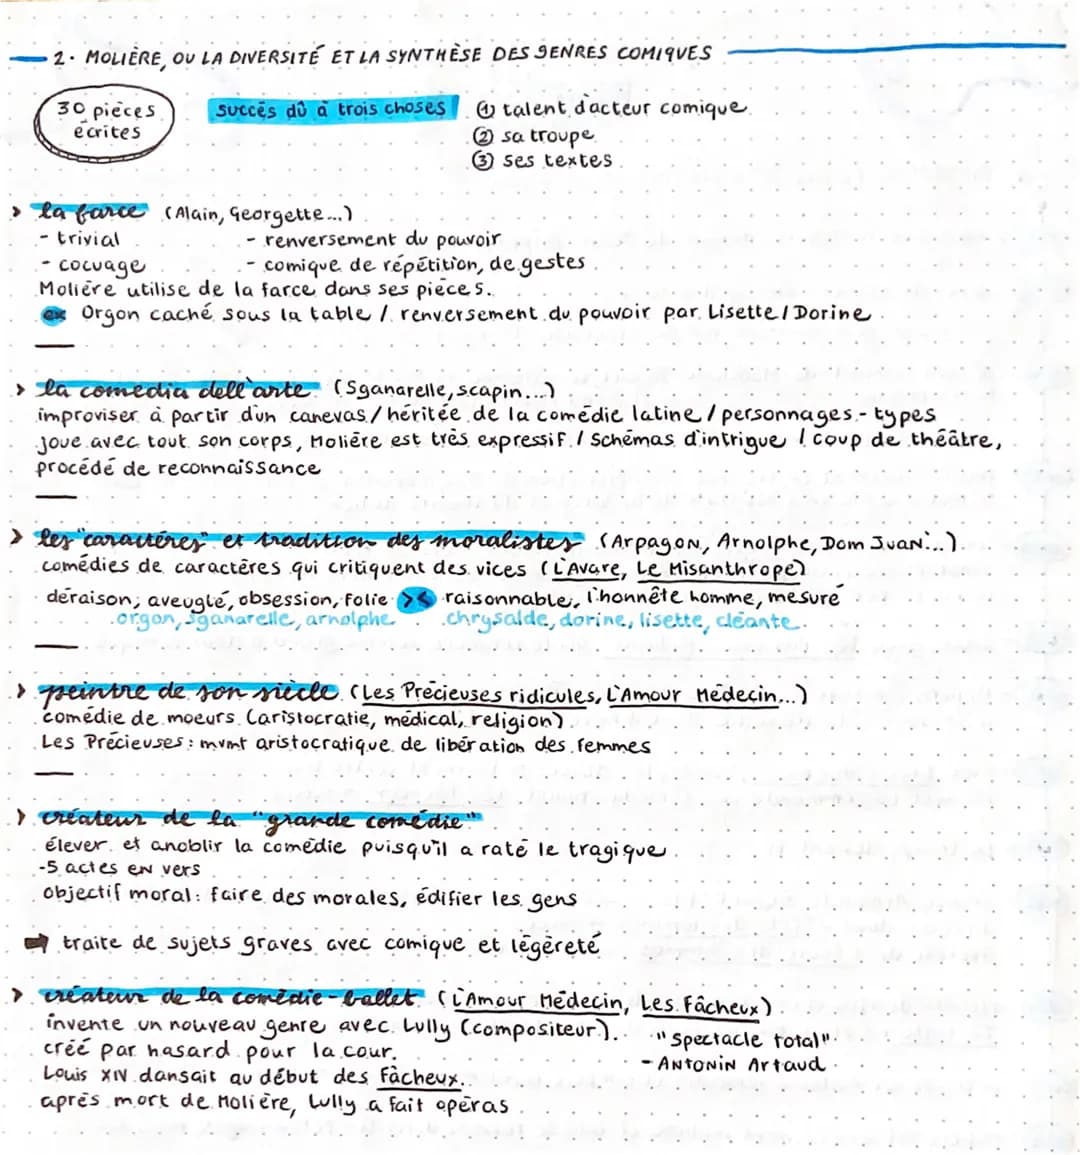 2. MOLIÈRE, OU LA DIVERSITÉ ET LA SYNTHÈSE DES GENRES COMIQUES
30 pièces écrites
succès dû à trois choses ① talent d'acteur comique
② sa troupe
③ ses textes
> la farce (Alain, Georgette...)
- trivial - renversement du pouvoir
- cocuage - comique de répétition, de gestes
Molière utilise de la farce dans ses pièces.
ex Orgon caché sous la table / renversement du pouvoir par Lisette / Dorine
> la comedia dell'arte (Sganarelle, scapin...)
improviser à partir d'un canevas / héritée de la comédie latine / personnages-types
joue avec tout son corps, Molière est très expressif / schémas d'intrigue / coup de théâtre,
procédé de reconnaissance
> les "caractères" et tradition des moralistes (Arpagon, Arnolphe, Dom Juan...)
comédies de caractères qui critiquent des vices (L'Avare, Le Misanthrope)
déraison, aveuglé, obsession, folie >< raisonnable, l'honnête homme, mesure
orgon, sganarelle, arnolphe chrysalde, dorine, lisette, cléante
> peintre de son siècle (Les Précieuses ridicules, L'Amour Médecin...)
comédie de moeurs (aristocratie, médical, religion)
Les Précieuses : mvmt aristocratique de libération des femmes
> créateur de la "grande comédie"
élever et anoblir la comédie puisqu'il a raté le tragique
-5 actes en vers
objectif moral : faire des morales, édifier les gens
➡ traite de sujets graves avec comique et légèreté
> créateur de la comédie-ballet (L'Amour Médecin, Les Fâcheux)
invente un nouveau genre avec Lully (compositeur). "spectacle total"
créé par hasard pour la cour. - Antonin Artaud
Louis XIV dansait au début des Fâcheux.
après mort de Molière, Lully a fait opéras